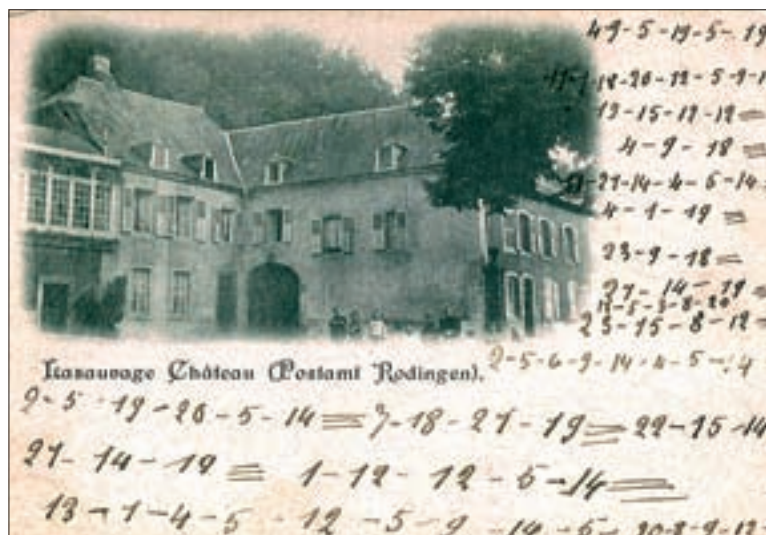 49-5-19-5-19
11-1-18-20-12-5-9-1
19-15-12-12 =
4-9-18 =
11-21-14-4-5-14
4-1-19 =
23-9-18 =
21-14-19 =
18-5-3-8-20
23-15-8-12 =
Lasauvage Château (Postamt Rodingen).
2-5-6-9-14-4-5-14
2-5-19-20-5-14 = 7-18-21-19 = 22-15-14
21-14-19 = 1-12-12-5-14 =
13-1-4-5-12-5-9-14-5-20-8-9-12-